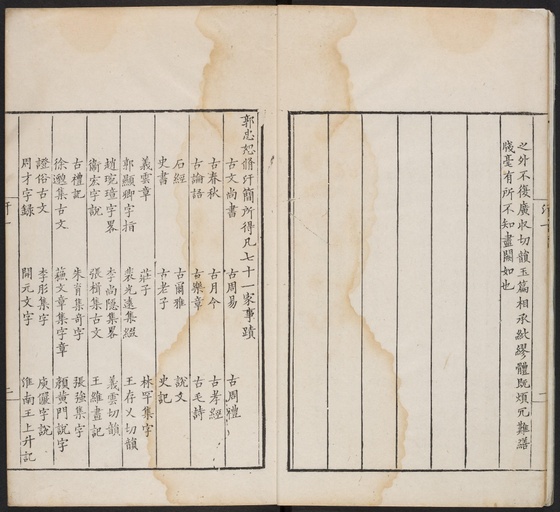 之外不復廣收切韻玉篇相承紕繆體既煩冗難繕
牋毫有所不知盡闕如也
郭忠恕脩汗簡所得凡七十一家事蹟
古文尚書 古周易 古周禮
古春秋 古月令 古孝經
古論語 古樂章 古毛詩
石經 古爾雅 說文
史書 古老子 史記
義雲章 莊子 林罕集字
郭顯卿字指 裴光遠集綴 王存乂切韻
趙琬璋字畧 李尚隱集畧 義雲切韻
衛宏字說 張楫集古文 王維畫記
古禮記 朱育集奇字 張強集字
徐邈集古文 蘓文章集字章 顏黃門說字
證俗古文 李彤集字 庾儼字說
周才字録 開元文字 淮南王上升記